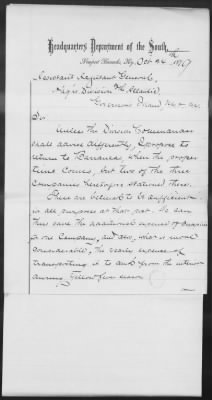 Headquarters Department of the South
Newport Barracks, Ky., Oct 24th 1877
Assistant Adjutant General,
Div'n of the Atlantic
Governors Island, N.Y.
Sir:
Unless the Division Commander
shall advise differently, I propose to
return to Barrancas, when the proper
time comes, but two of the three
Companies heretofore stationed there.
These are believed to be sufficient
for all purposes at that post. We can
thus save the additional expense of
to one Company, and also, what is more
considerable, the yearly expense of
transporting it to and from the interior
during Yellow fever season